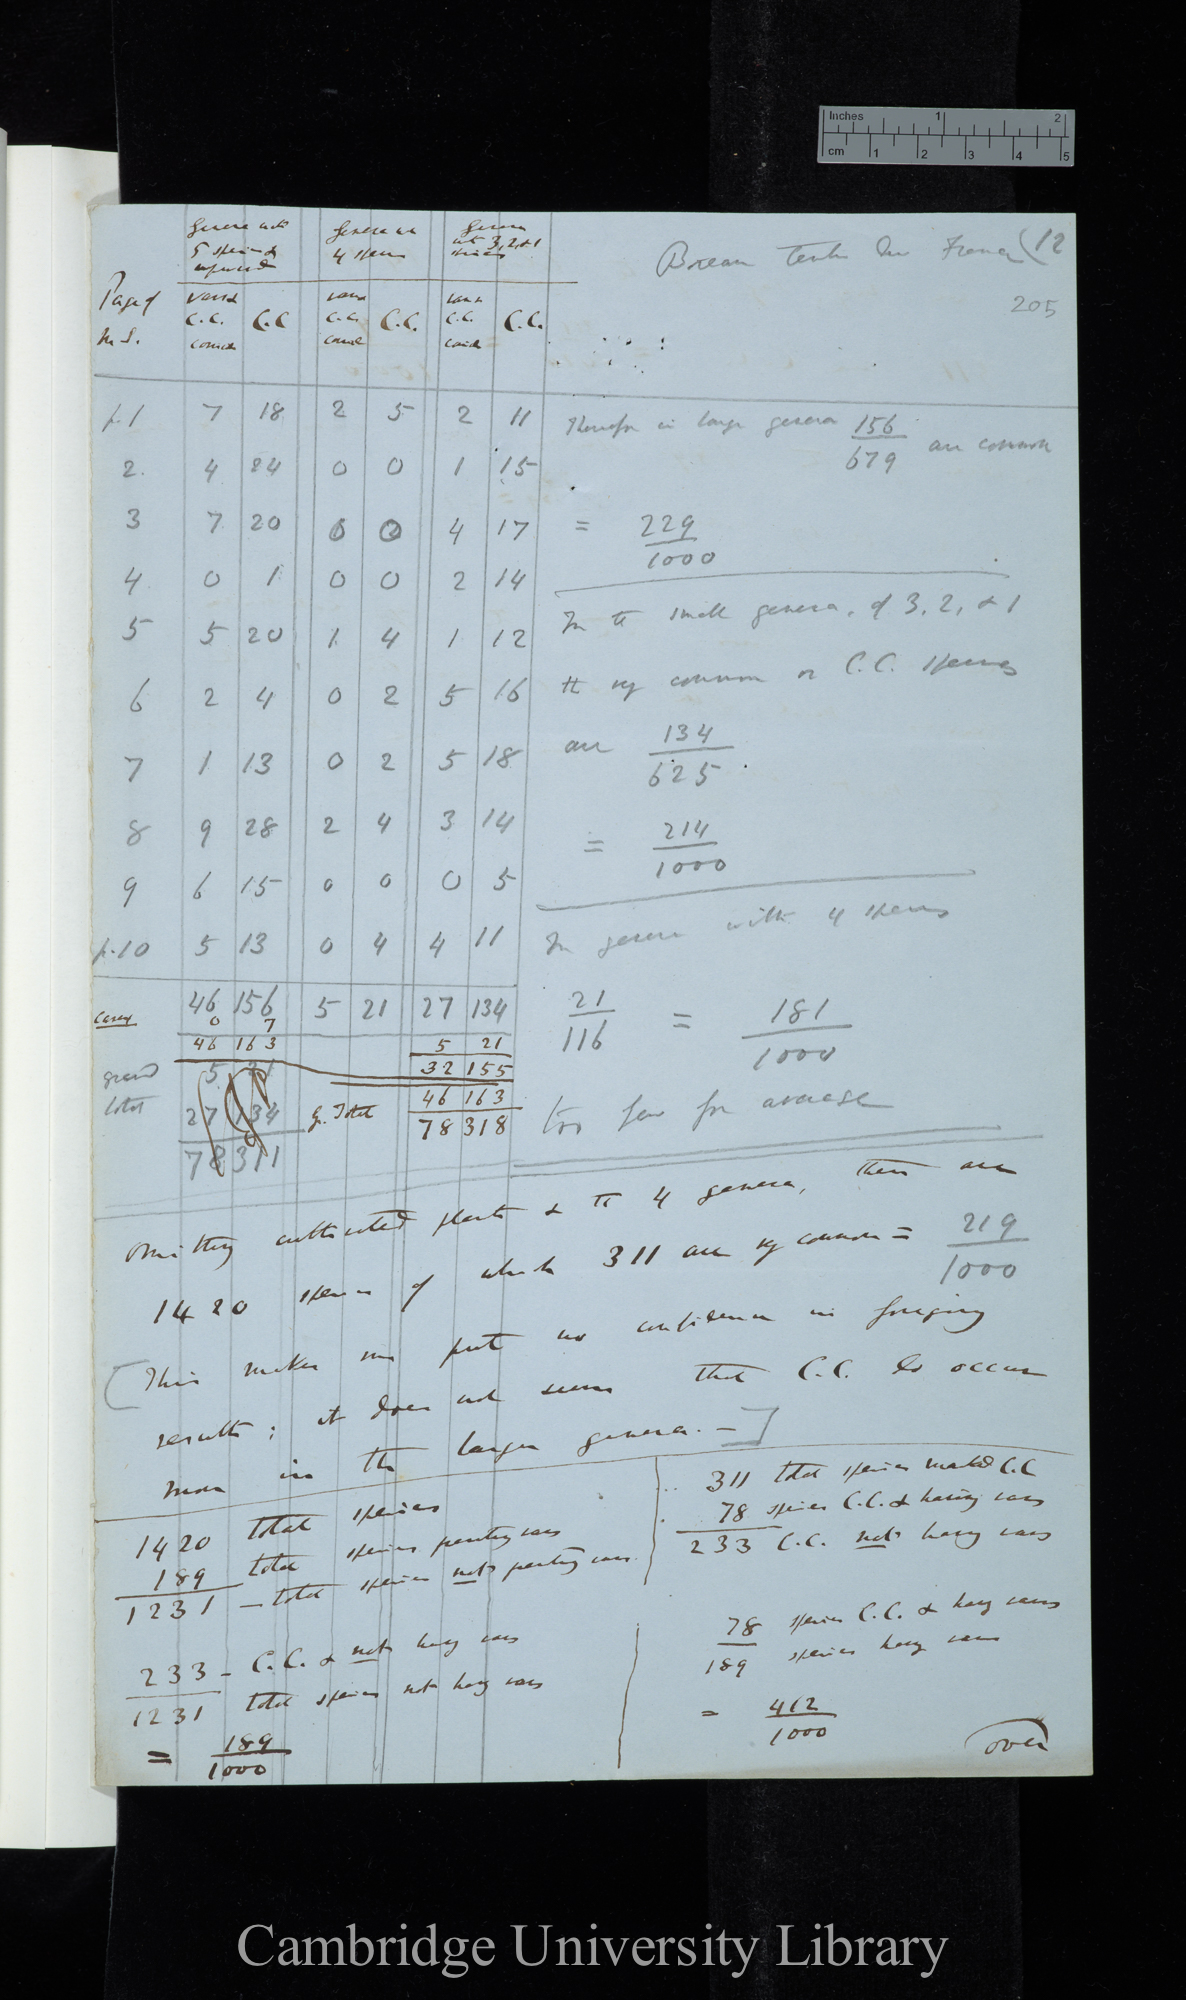 Inches 1 2
cm 1 2 3 4 5
Boreau Centr. de France (12
205
Genera with 5 species & upwards
Genera with 4 species
Genera with 3, 2, & 1 species
Page of M.S.
C.C. C.C C.C. C.C. C.C. C.C.
p.1 7 18 2 5 2 11
2. 4 24 0 0 1 15
3 7 20 0 0 4 17
4 0 1 0 0 2 14
5 5 20 1 4 1 12
6 2 4 0 2 5 16
7 1 13 0 2 5 18
8 9 28 2 4 3 14
9 6 15 0 0 0 5
p.10 5 13 0 4 4 11
46 156 5 21 27 134
Carex 0 7
46 163 5 21
32 155
grand 5 21
total 27 134 G. Total 46 163
78 318
78 311
Therefore in large genera 156/679 are common
= 229/1000
In the small genera, of 3, 2, & 1
the very common or C.C. species
are 134/625
= 214/1000
In genera with 4 species
21/116 = 181/1000
too few for average
Omitting cultivated plants & the 4 genera, there are
1420 species of which 311 are very common = 219/1000
[This makes me put no confidence in foregoing
results; it does not seem that C.C. do occur
more in the larger genera. —]
1420 total species
189 total species presenting vars
1231 — total species not presenting vars.
233 — C.C. & not having vars
1231 total species not having vars
= 189/1000
311 total species marked C.C
78 species C.C. & having vars
233 C.C. not having vars
78 species C.C. & having vars
189 species having vars
= 412/1000
over
Cambridge University Library